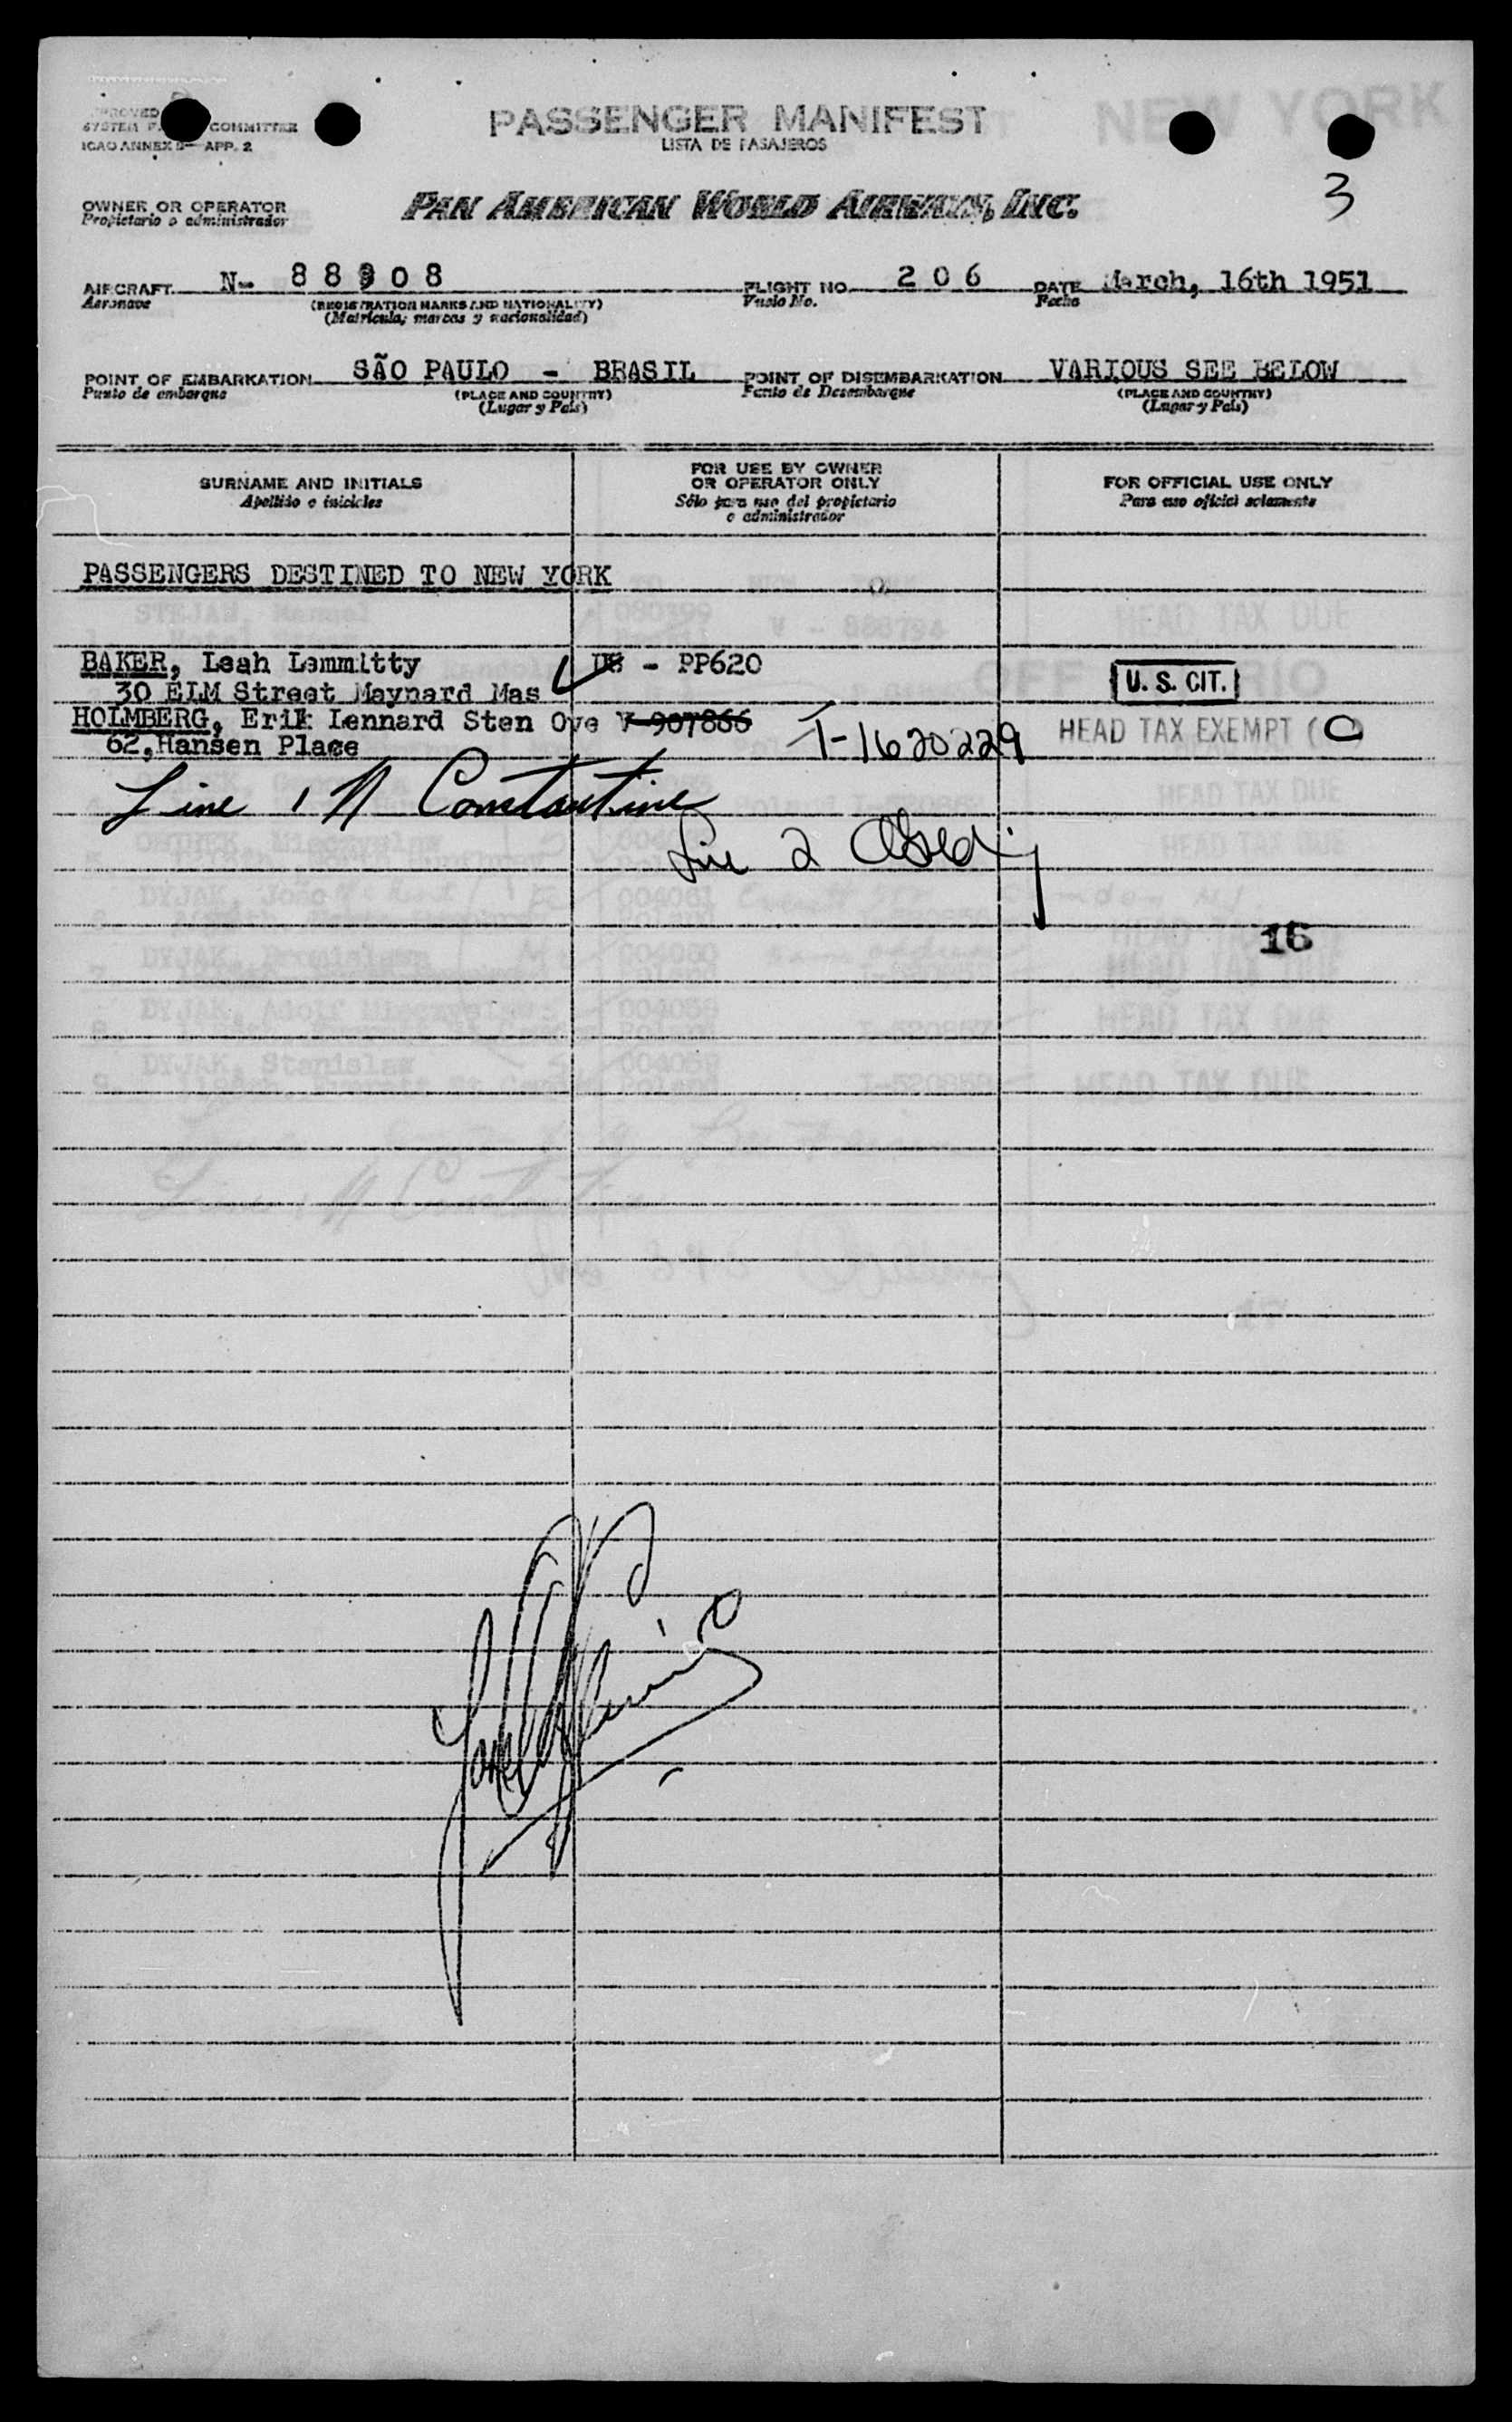 NEW YORK
APPROVED
SYSTEM F. COMMITTEE
ICAO ANNEX 9— APP. 2
PASSENGER MANIFEST
LISTA DE PASAJEROS
3
OWNER OR OPERATOR
Propietario o administrador
PAN AMERICAN WORLD AIRWAYS, INC.
AIRCRAFT N- 88908 FLIGHT NO. 206 DATE March, 16th 1951
Aeronave (REGISTRATION MARKS AND NATIONALITY) Vuelo No. Fecha
(Matrícula, marcas y nacionalidad)
POINT OF EMBARKATION SÃO PAULO - BRASIL POINT OF DISEMBARKATION VARIOUS SEE BELOW
Punto de embarque (PLACE AND COUNTRY) Punto de Desembarque (PLACE AND COUNTRY)
(Lugar y País) (Lugar y País)
SURNAME AND INITIALS FOR USE BY OWNER OR OPERATOR ONLY FOR OFFICIAL USE ONLY
Apellido e iniciales Sólo para uso del propietario o administrador Para uso oficial solamente
PASSENGERS DESTINED TO NEW YORK
BAKER, Leah Lammitty US - PP620
30 ELM Street Maynard Mas U. S. CIT.
HOLMBERG, Erik Lennard Sten Ove V-907866 T-1620229 HEAD TAX EXEMPT (C)
62, Hansen Place
Line 1 N Constantine
Line 2
16